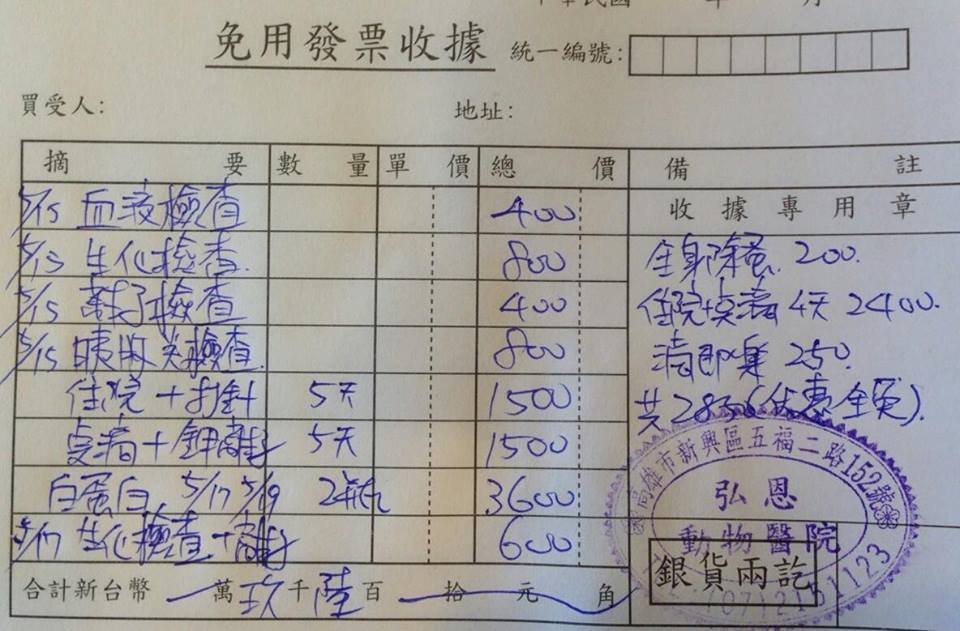 免用發票收據 統一編號:
買受人: 地址:
摘要 數量 單價 總價 備註
收據專用章
5/15 血液檢查 400
5/15 生化檢查 800
5/15 離子檢查 400
5/15 胰臟炎檢查 800
住院+打針 5天 1500
點滴+鉀離子 5天 1500
白蛋白 5/17 5/19 2瓶 3600
5/17 生化檢查+離子 600
合計新台幣 萬玖千陸百拾元角
全身除蚤 200.
住院+點滴 4天 2400.
250.
共2850(優惠全免).
高雄市新興區五福二路152號
弘恩
動物醫院
銀貨兩訖